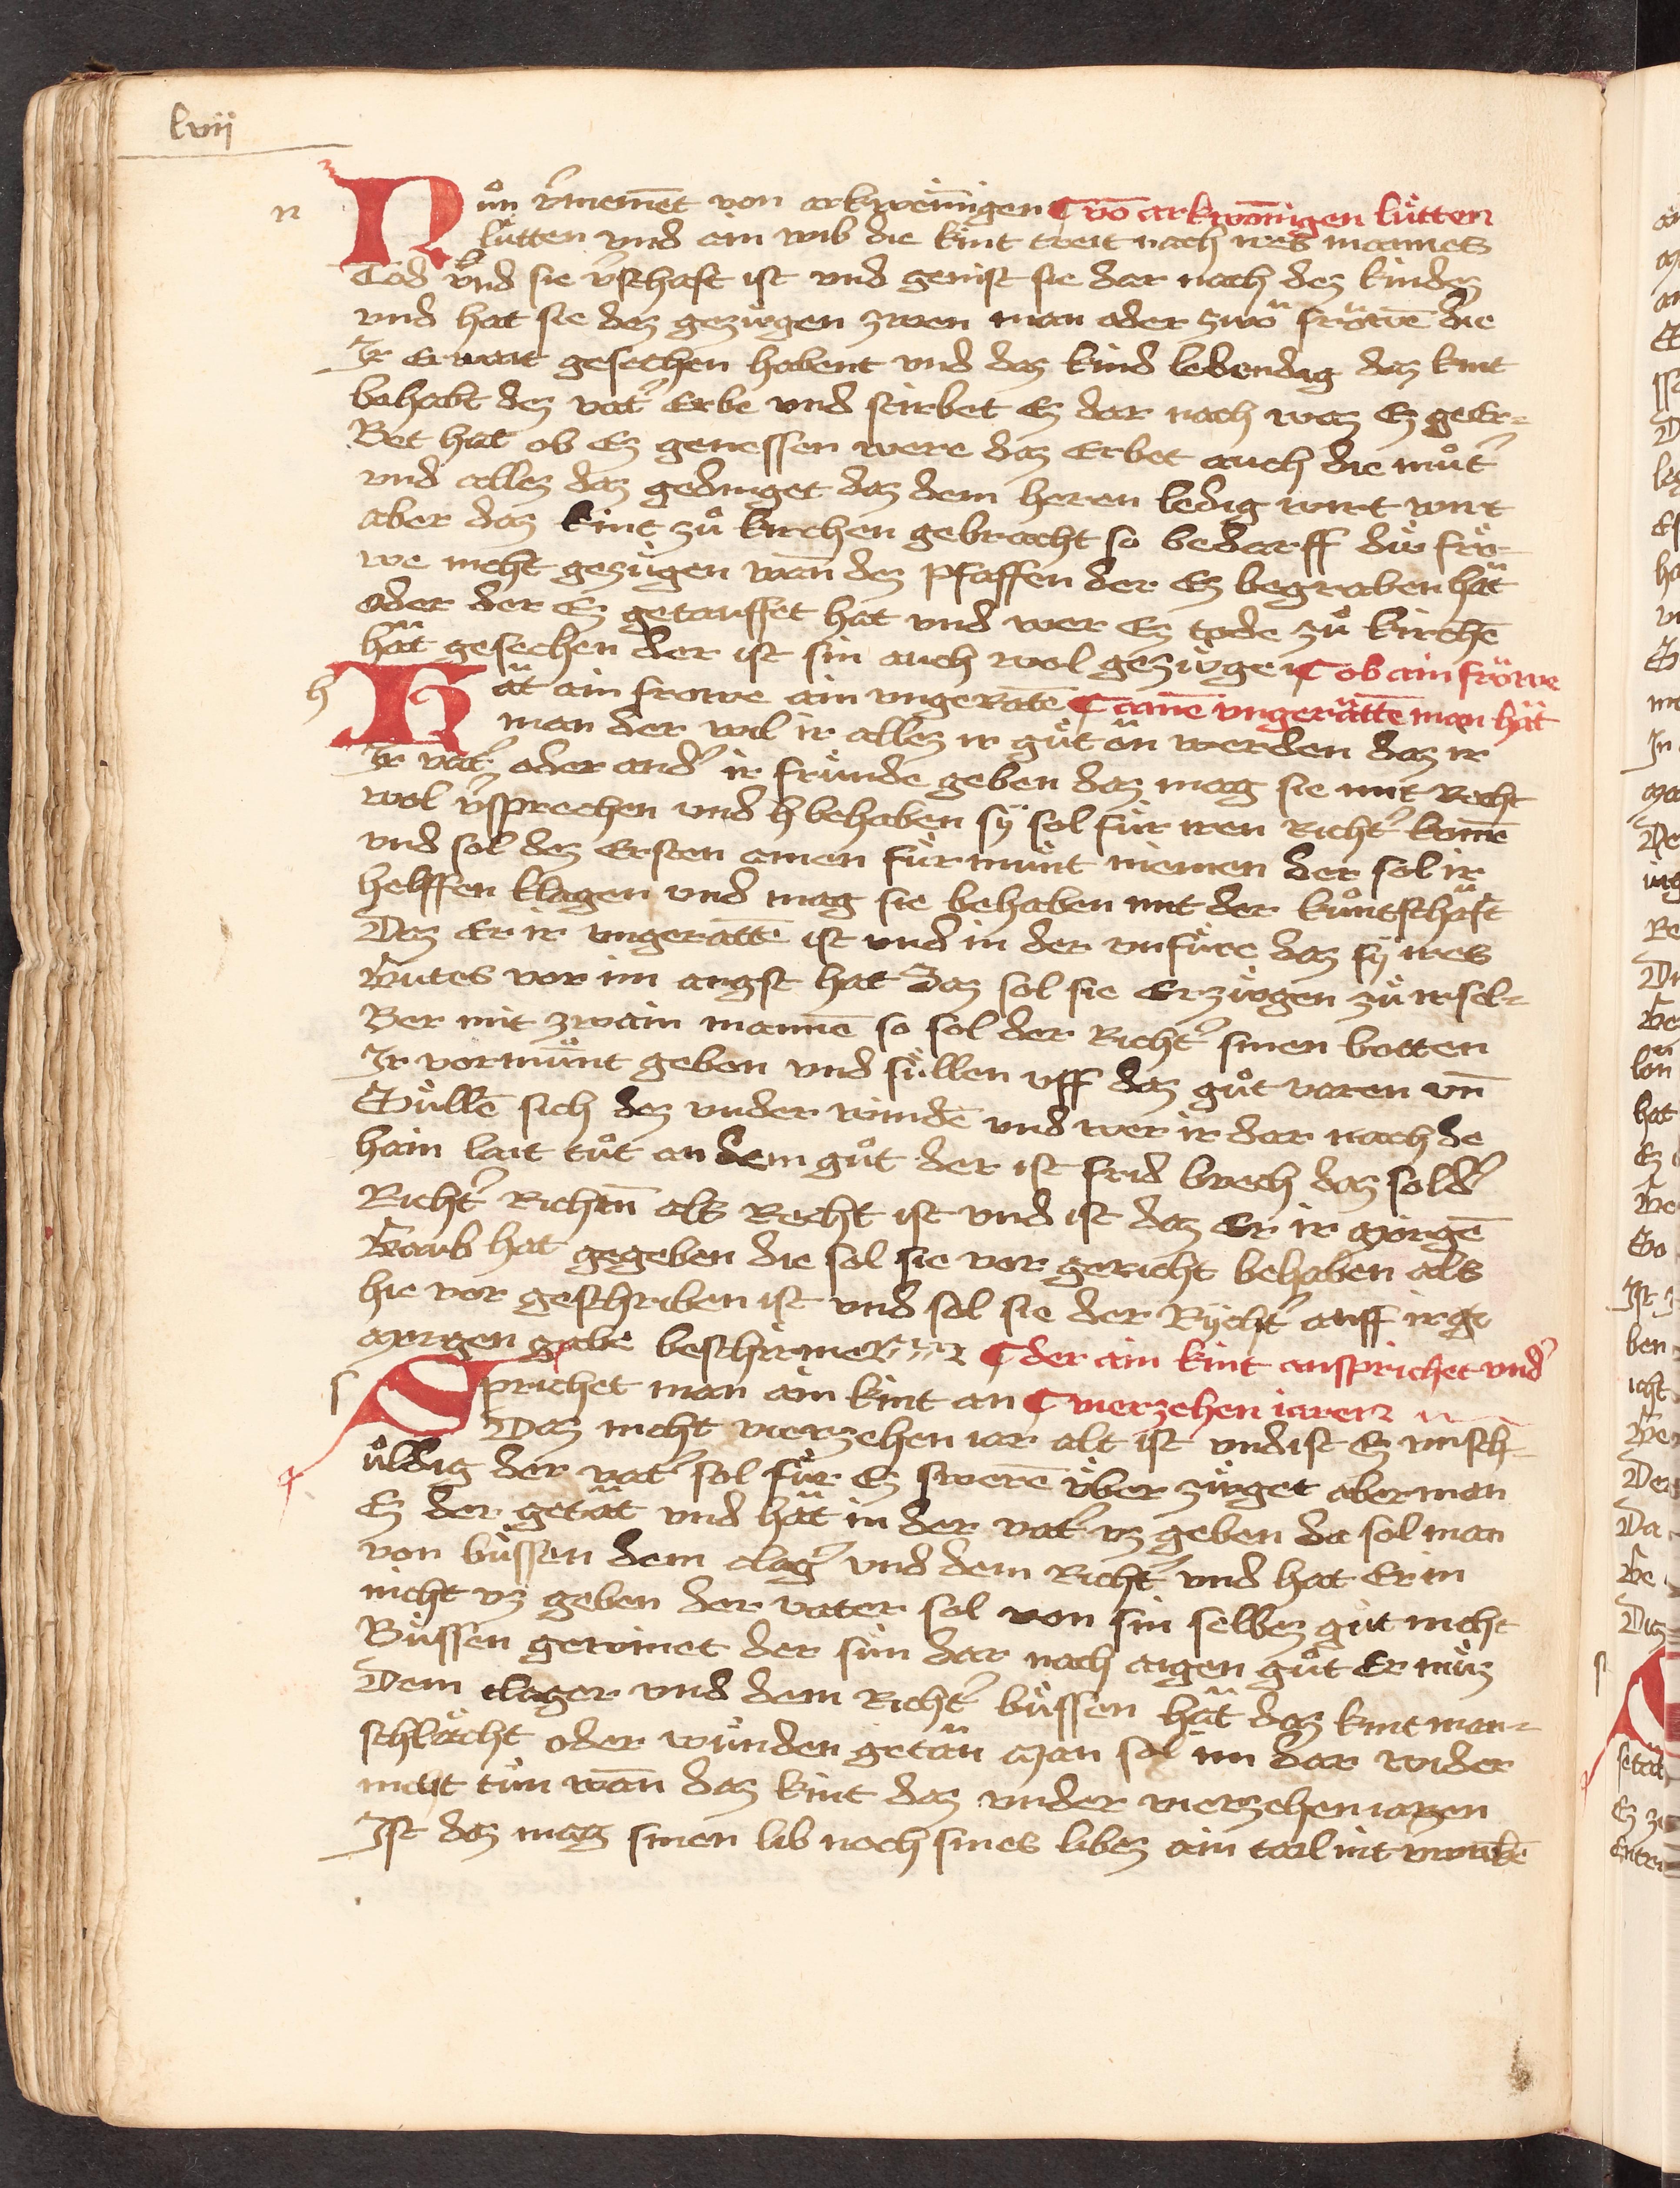 lvii
n
Nuͦn v̾nement von arkwenigen ¶ võ arkwõnigen luͤtten
luͤtten vnd ain wib die kint treit nach ires mannes
Tod vnd sie v̾schaft ist vnd genist sie dar nach dez kindez
vnd hat sie dez gezuͤgen zwen man oder zwö fröwẽ die
Ir Erwait gesechen habent vnd daz kind lebendig daz kint
behabt dez vat̾ Erbe vnd stirbet Ez dar nach waz Ez geer-
Bet hat ob Ez genessen were daz Erbet auch die muͦt̾
vnd allez daz gedinget daz dem heren ledig wirt wirt
aber daz kint zuͦ kirchen gebracht so bedarff duͤ frö-
we nicht gezuͤgen wañ dez pfaffen der Ez begraben hät
oder der Ez getauffet hat vnd wer Ez tode zuͦ kirchẽ
hät gesechen der ist sin auch wol gezuͤgen ¶ ob ain fröwe
h
Hät ain frowe ain vngeratẽ ¶ ainẽ vngerättẽ man hät
man der wil ir allez ir guͦt än werden daz ir
Ir vat̾ oder and̾ ir fruͤnde geben daz mag sie mit recht
wol v̾sprechen vnd h behaben sÿ sol fuͤr iren Richt̾ komẽ
vnd sol dez Ersten ainen fuͤr munt niemen der sol ir
helffen klagen vnd mag sie behaben mit der kuͦntschäft
Daz Er ir vngerattẽ ist vnd in der vnfuͦre daz sÿ ires
Gutes vor im angst hat Daz sol sie Erzuͤgen zuͦ ir sel-
Ber mit zwain mannẽ so sol der Richt̾ sinen botten
Ir vormuͤnt geben vnd suͤllen vff daz guͦt varen vñ
Suͤllẽ sich dez vnder windẽ vnd wer ir dar nach de
hain lait tuͦt an dem guͦt der ist frid brech daz sol d̾
Richt̾ Richtñ als Recht ist vnd ist daz Er ir morgẽ
Gaub hat gegeben die sol sie vor gericht behaben als
hie vor geschriben ist vnd sol sie der Rÿcht̾ auff ir ge
morgen gabe beschirmen ¶ der ain kint ansprichet vnd̾
s
Sprichet man ain kint an ¶ vierzehen iaren
Daz nicht vierzehen iar alt ist vnd ist Ez vnsch-
uͦldig der vat̾ sol fuͤr Ez swerẽ uͤber zuͤget aber man
Ez der getät vnd hät in der vat̾ vz geben da sol man
von buͤssen dem clag̾ vnd dem Richt̾ vnd hat Er in
nicht vz geben der vater sol von sin selbez guͦt nicht
Buͤssen gewinnet der sun dar nach aigen guͦt Er muͦz
Dem clager vnd dem Richt̾ buͤssen hät daz kint man-
schlächt oder wuͤnden getän man sol im dar wider
nicht tuͦn wañ daz kint daz vnder vierzehen iaren
Ist daz mag sinen lib noch sines libez ain tail nit